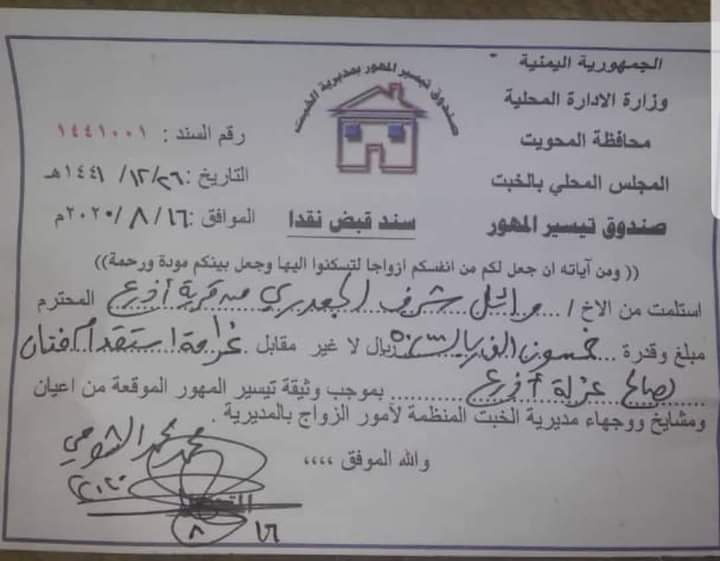 الجمهورية اليمنية
وزارة الادارة المحلية
محافظة المحويت
المجلس المحلي بالخبت
صندوق تيسير المهور
صندوق تيسير المهور بمديرية الخبت
رقم السند : ١٤٤١٠٠١
التاريخ : ٢٦/ ١٢/ ١٤٤١هـ
الموافق : ١٦/ ٨/ ٢٠٢٠م
سند قبض نقدا
(( ومن آياته ان جعل لكم من انفسكم ازواجا لتسكنوا اليها وجعل بينكم مودة ورحمة))
استلمت من الاخ / وائل شرف الجعدبي من قرية أذرع المحترم
مبلغ وقدرة خمسون الف ريال ريال لا غير مقابل غرامة استقدام فنان
لصالح عزلة أذرع بموجب وثيقة تيسير المهور الموقعة من اعيان
ومشايخ ووجهاء مديرية الخبت المنظمة لأمور الزواج بالمديرية .
والله الموفق ،،،،
محمد محمد الشومي
٢٠٢٠
١٦
٨